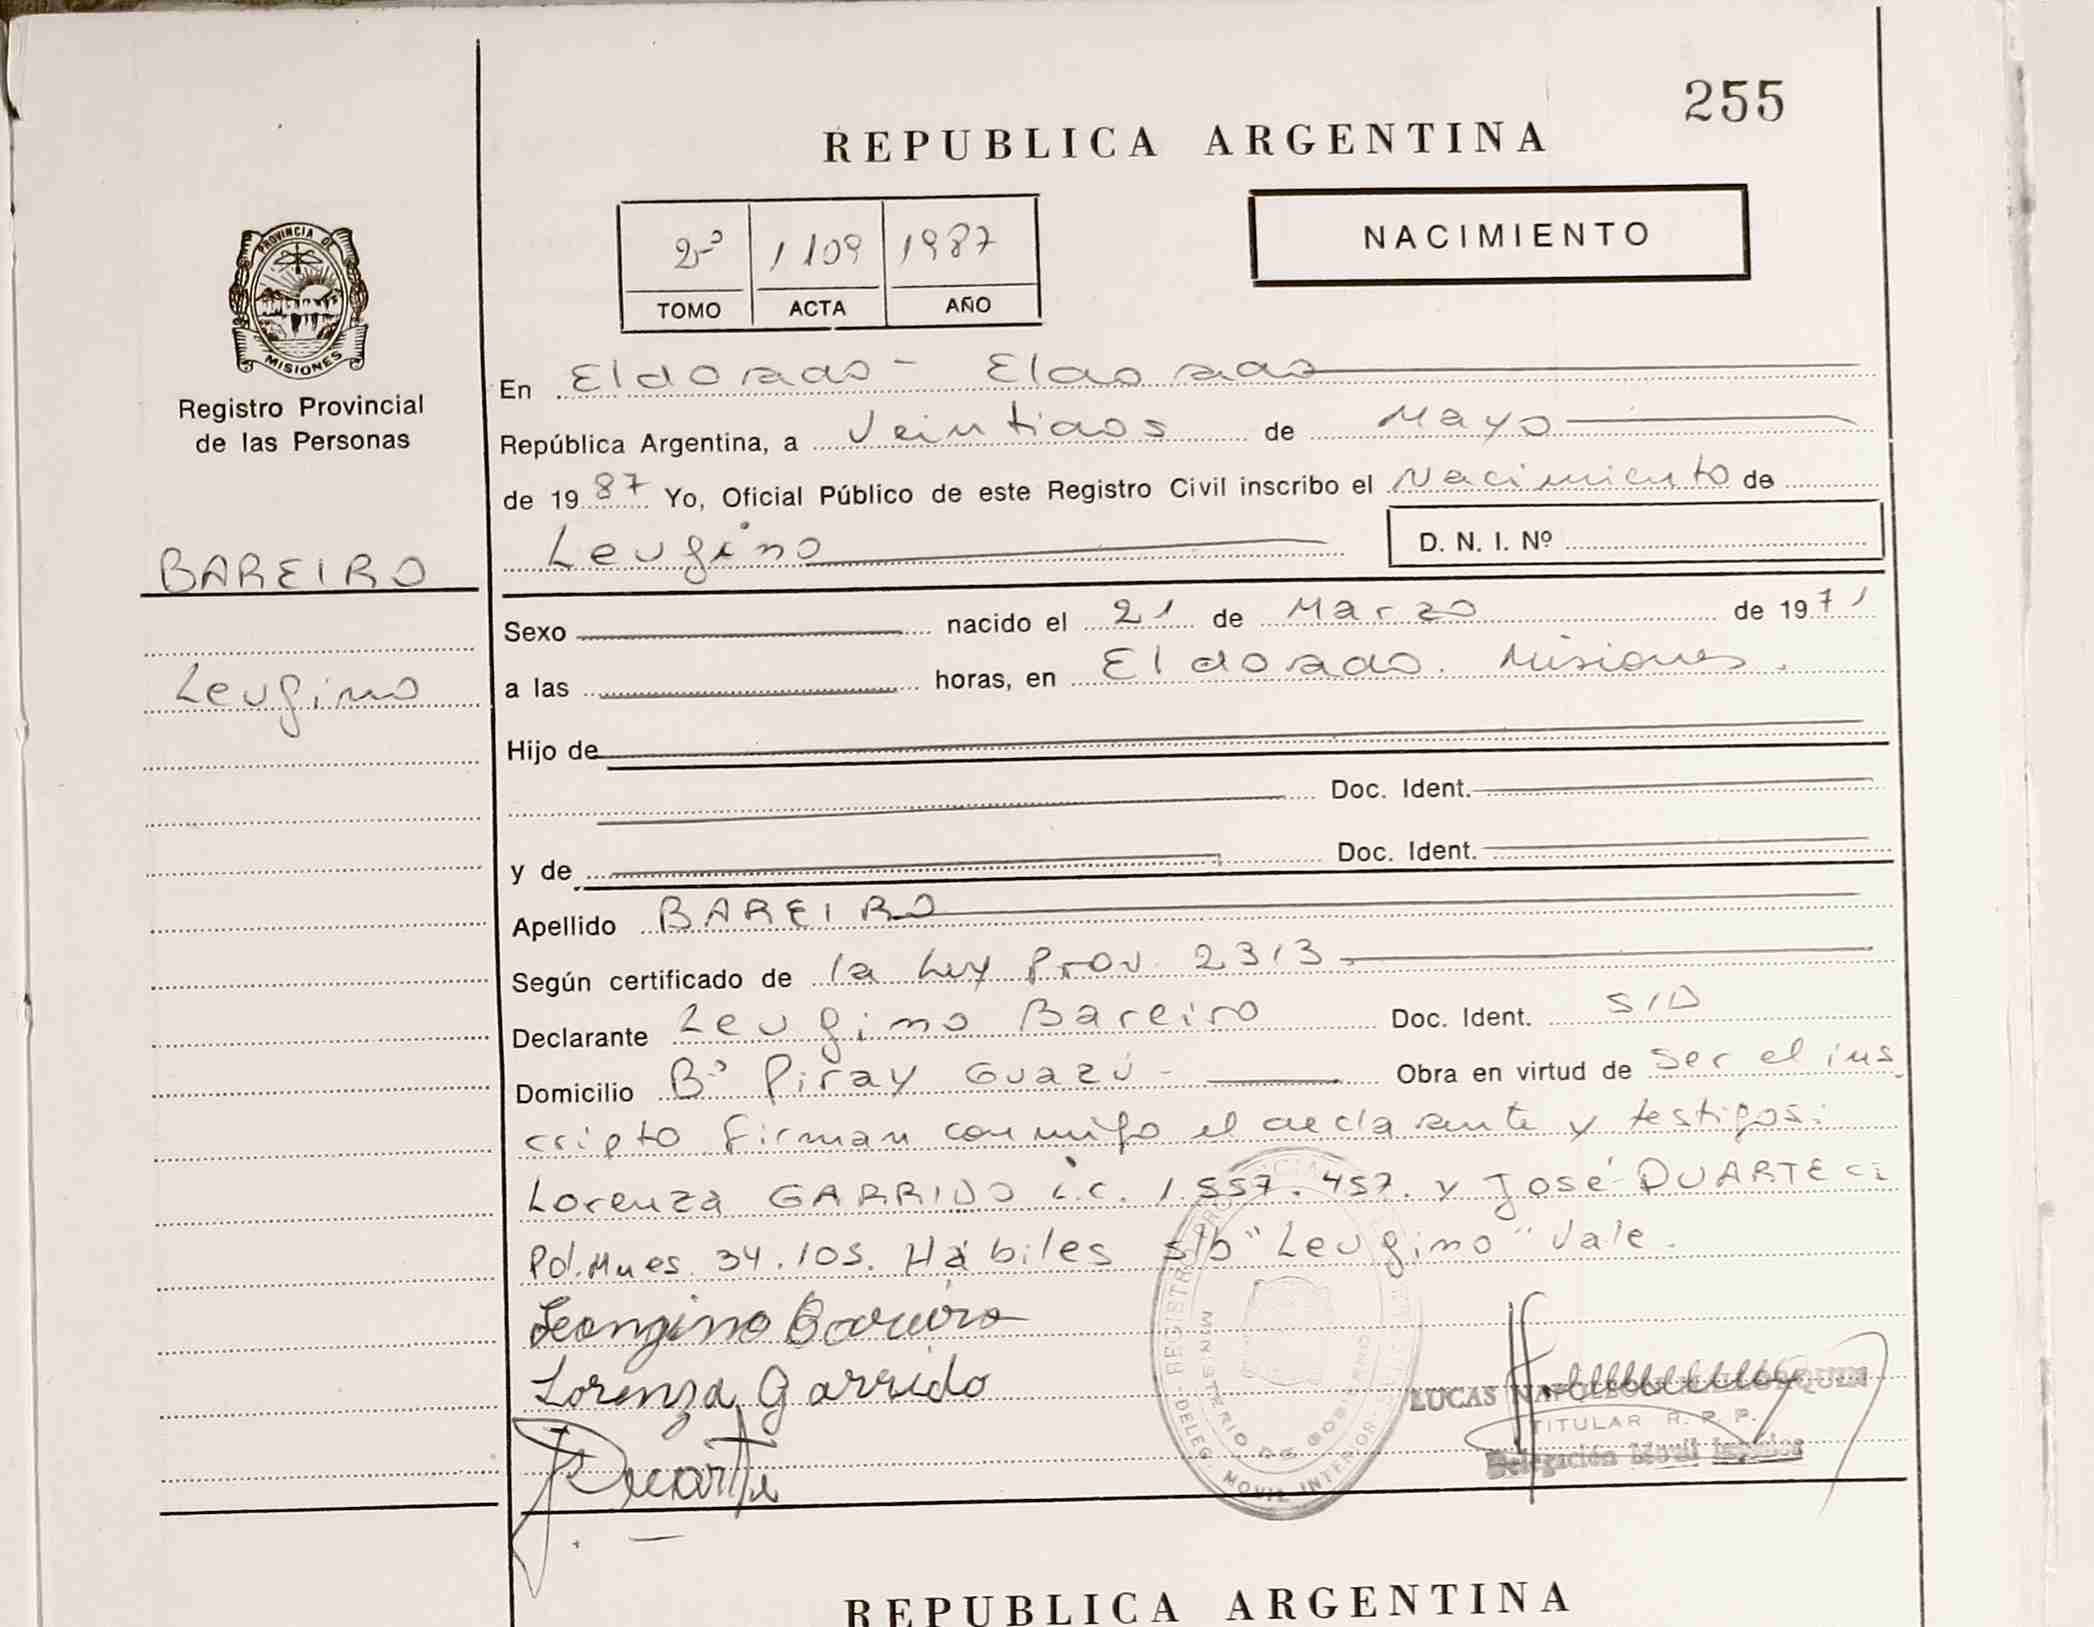 255
REPUBLICA ARGENTINA
2º 1109 1987
TOMO ACTA AÑO
NACIMIENTO
PROVINCIA DE
MISIONES
Registro Provincial
de las Personas
BAREIRO
Leugino
En Eldorado - Eldorado
República Argentina, a Veintidos de Mayo
de 1987 Yo, Oficial Público de este Registro Civil inscribo el Nacimiento de
Leugino D. N. I. Nº
Sexo nacido el 21 de Marzo de 1971
a las horas, en Eldorado. Misiones.
Hijo de
Doc. Ident.
y de Doc. Ident.
Apellido BAREIRO
Según certificado de la Ley Prov. 2313.
Declarante Leugino Bareiro Doc. Ident. S/D
Domicilio Bº Piray Guazú - Obra en virtud de ser el ins
cripto firman conmigo el declarante y testigos:
Lorenza GARRIDO i.c. 1.557.457. y José DUARTE ci
Pol. Mnes. 34.105. Hábiles s/b "Leugino" Vale.
Leongino Bareiro
Lorenza Garrido
Duarte
MINISTERIO DE GOBIERNO
DELEG. MOVIL INTERIOR
LUCAS
TITULAR R. P. P.
Delegación Movil Interior
REPUBLICA ARGENTINA